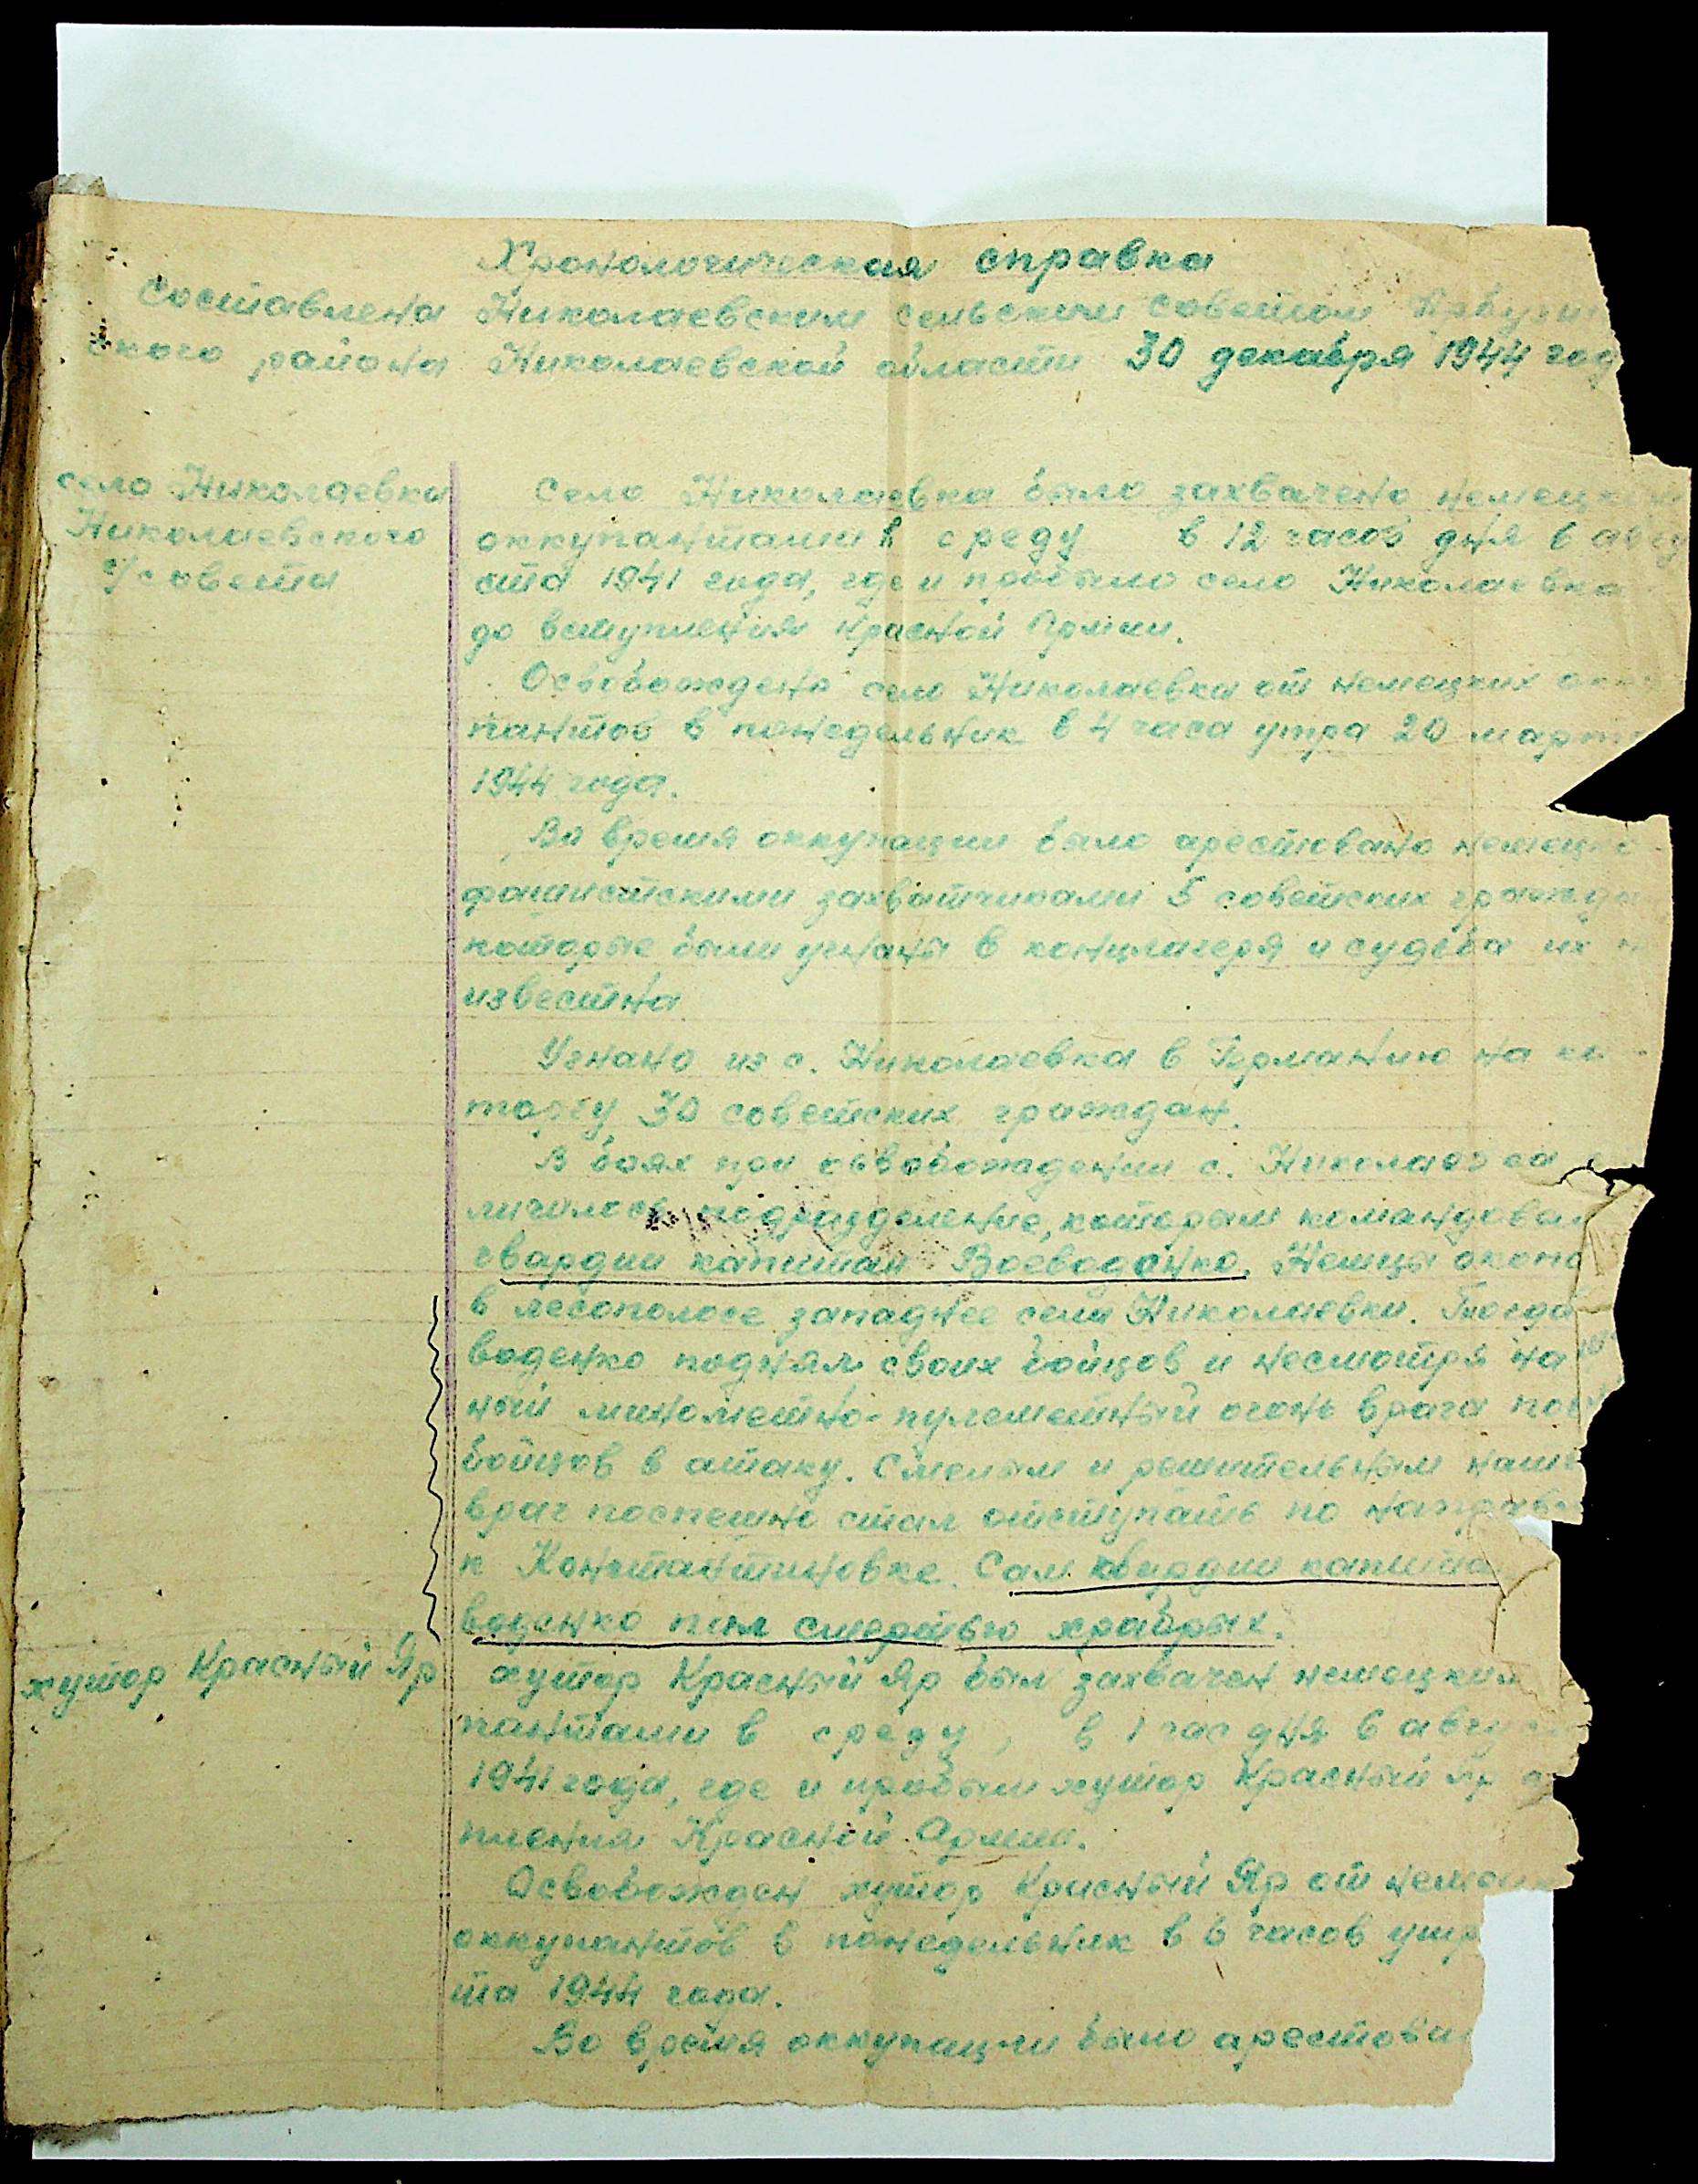 Хронологическая справка
Составлена Николаевским сельским Советом Арбузин
ского района Николаевской области 30 декабря 1944 год
село Николаевка
Николаевского
с/совета
Село Николаевка было захвачено немецкими
оккупантами в среду в 12 часов дня 6 авгу
ста 1941 года, где и пробыло село Николаевка
до вступления Красной Армии.
Освобождено село Николаевка от немецких окку
пантов в понедельник в 4 часа утра 20 марта
1944 года.
Во время оккупации было арестовано немецко
фашистскими захватчиками 5 советских гражда
которые были угнаны в концлагеря и судьба их н
известна
Угнано из с. Николаевка в Германию на ка-
торгу 30 советских граждан.
В боях при освобождении с. Николаевка о
личилось подразделение, которым командовал
гвардии капитан Воеводенко. Немцы окопа
в лесополосе западнее села Николаевки. Тогда
воденко поднял своих бойцов и несмотря на
ный минометно-пулеметный огонь врага пов
бойцов в атаку. Смелым и решительным нати
враг поспешно стал отступать по направл
к Константиновке. Сам гвардии капитан
воденко пал смертью храбрых.
хутор Красный Яр
хутор Красный Яр был захвачен немецким
пантами в среду, в 1 час дня 6 августа
1941 года, где и пробыл хутор Красный Яр
пления Красной Армии.
Освобожден хутор Красный Яр от немец
оккупантов в понедельник в 6 часов утр
та 1944 года.
Во время оккупации было арестован